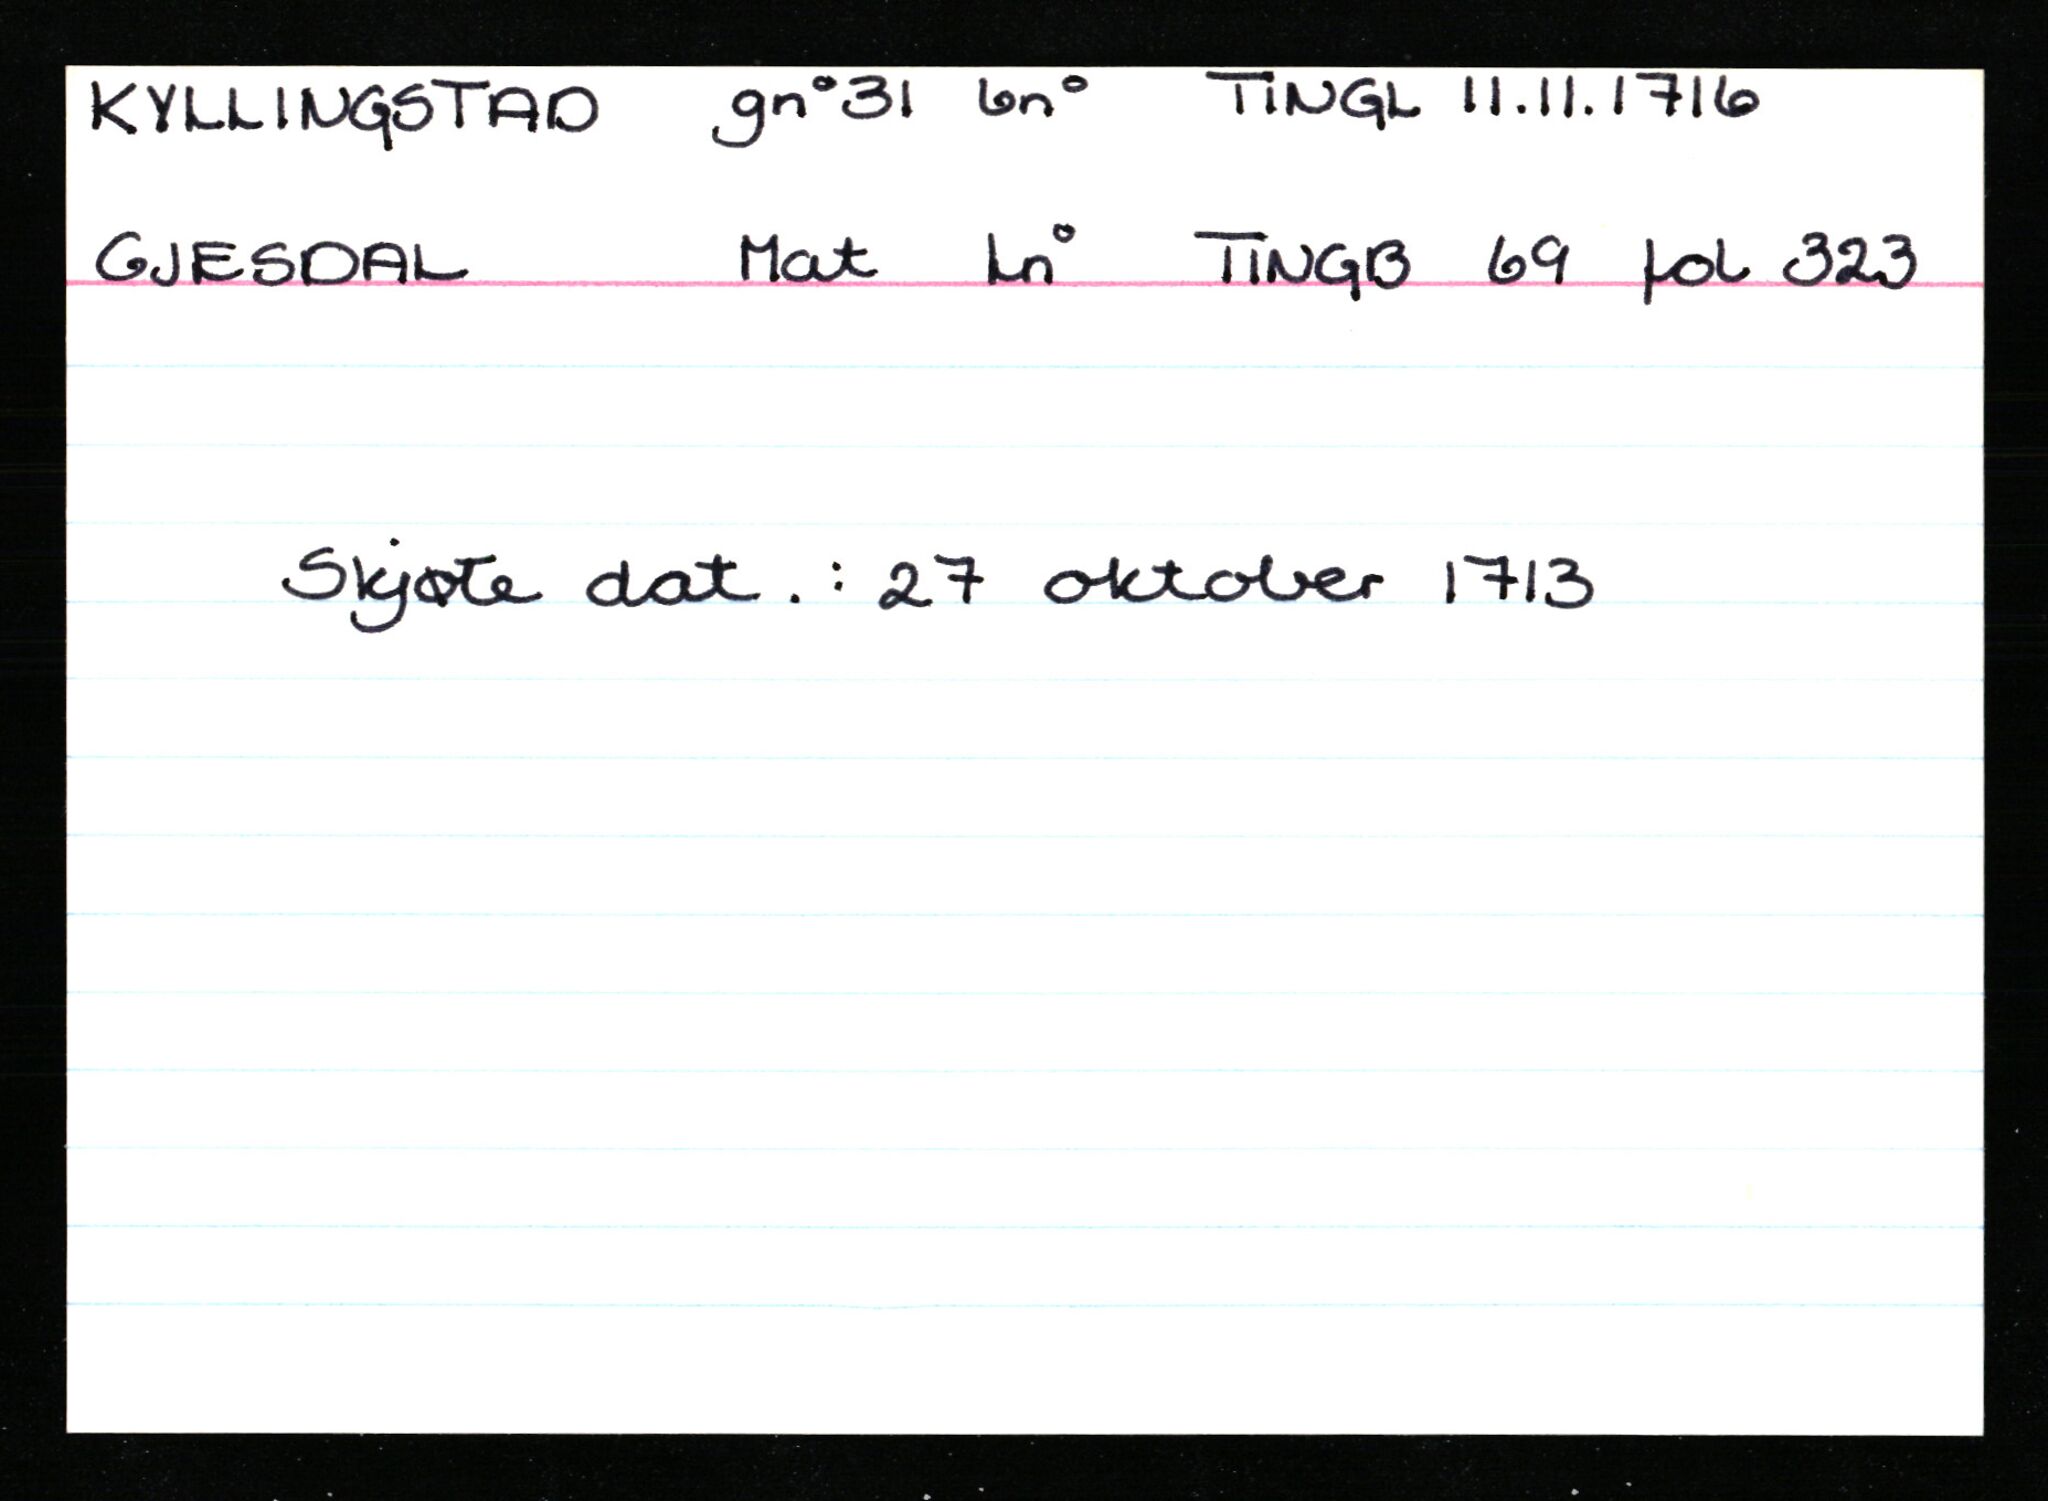 KYLLINGSTAD gn° 31 bn° TINGL 11.11.1716
GJESDAL Mat Ln° TINGB 69 fol 323
Skjøte dat. : 27 oktober 1713